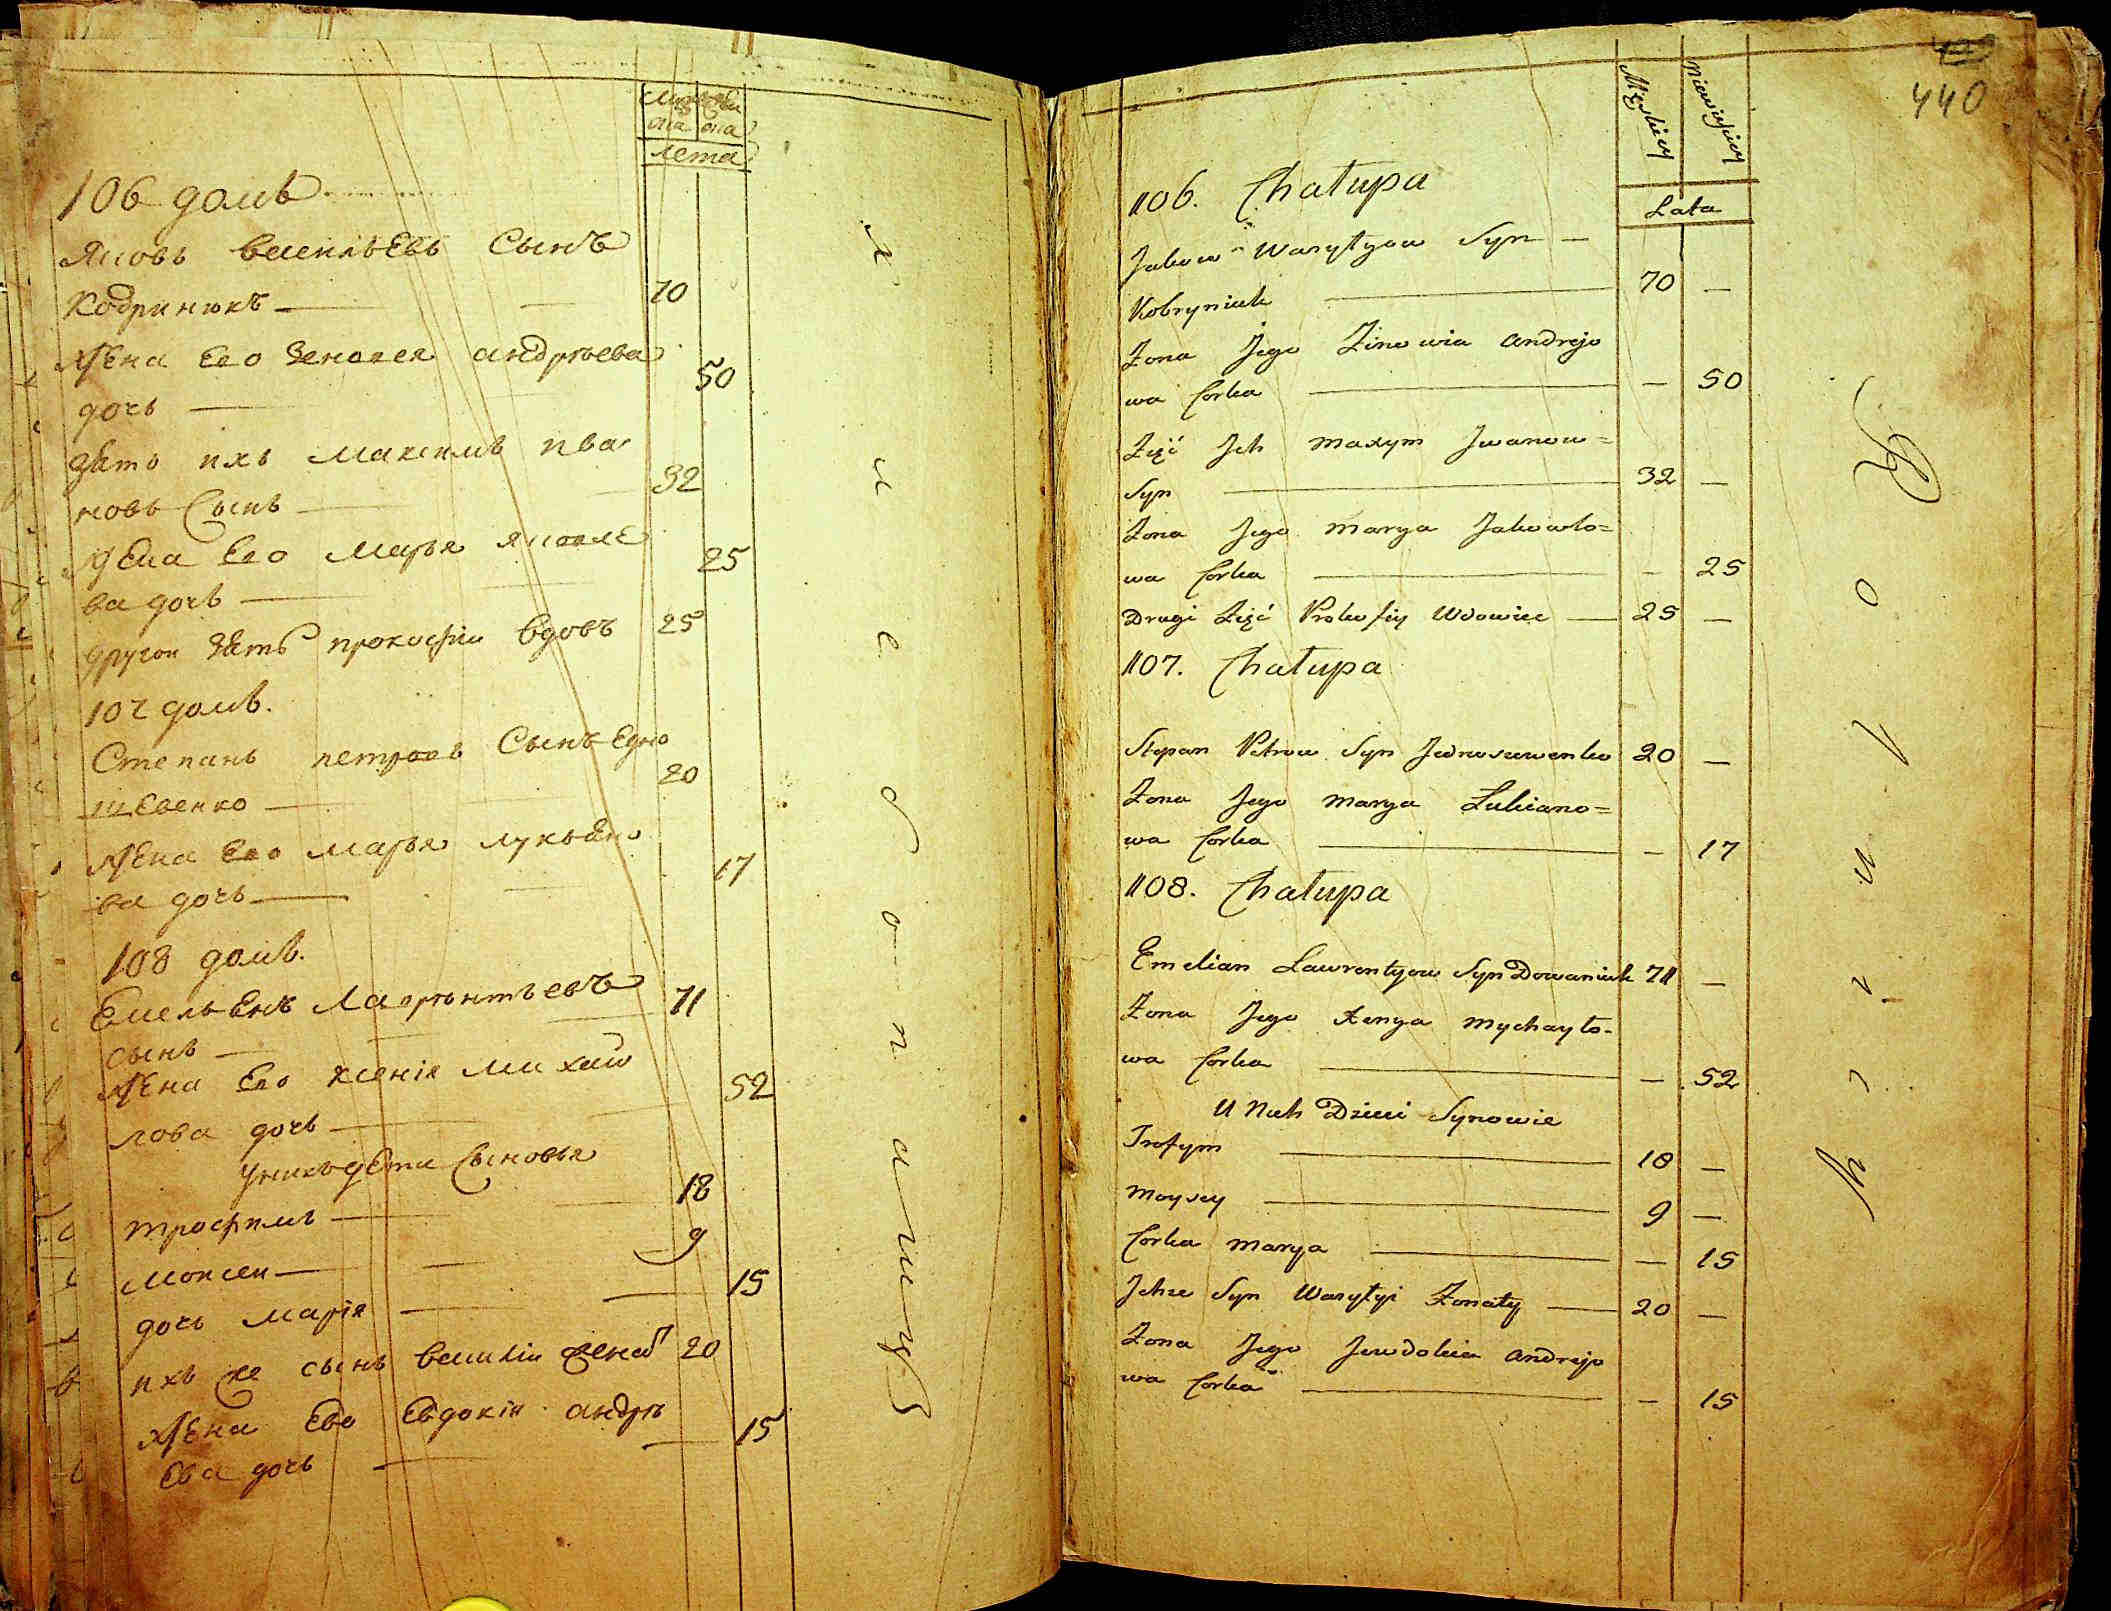 лета
106 домъ
Яковъ Васильевъ Сынъ
Кобринюкъ — 70
Жена Его Зеновея андрѣева
дочь — 50
Зять ихъ Максимъ ива
новъ Сынъ — 32
Жена Его Марья яковле
ва дочь — 25
другои Зять прокофiи вдовъ 25
107 домъ.
Степанъ петровъ Сынъ Едно
шЕвенко — 20
Жена Его марья лукьяно
ва дочь — 17
108 домъ.
Емельянъ Лаврѣнтьевъ 71
сынъ —
Жена Его ксенiя михаи
лова дочь — 52
унихъ дѣти Сыновья
трофимъ — 18
Моисеи — 9
дочь марiя — 15
ихъ же сынъ василiи женатъ 20
Жена Его Евдокiя андрѣ
Ева дочь — 15
440
Męzkiey Niewieściey
Lata
106. Chałupa
Jakow Wasylyow Syn —
Kobryniuk — 70 —
Żona Jego Zinowia Andrejo
wa Corka — — 50
Zięć Ich Maxym Jwanow=
Syn — 32 —
Żona Jego Marya Jakowlo=
wa Corka — — 25
Drugi Zięć Prokofiy Wdowiec — 25 —
107. Chałupa
Stepan Petrow Syn Jednoszewenko 20 —
Żona Jego Marya Łukiano=
wa Corka — — 17
108. Chałupa
Emelian Lawrentyow Syn Dowaniuk 71 —
Żona Jego Xenya Mychayło-
wa Corka — — 52
U Nich Dzieci Synowie
Trofym — 18 —
Moysey — 9 —
Corka Marya — — 15
Ichże Syn Wasylyi Żonaty — 20 —
Żona Jego Jewdokia Andrejo
wa Corka — — 15